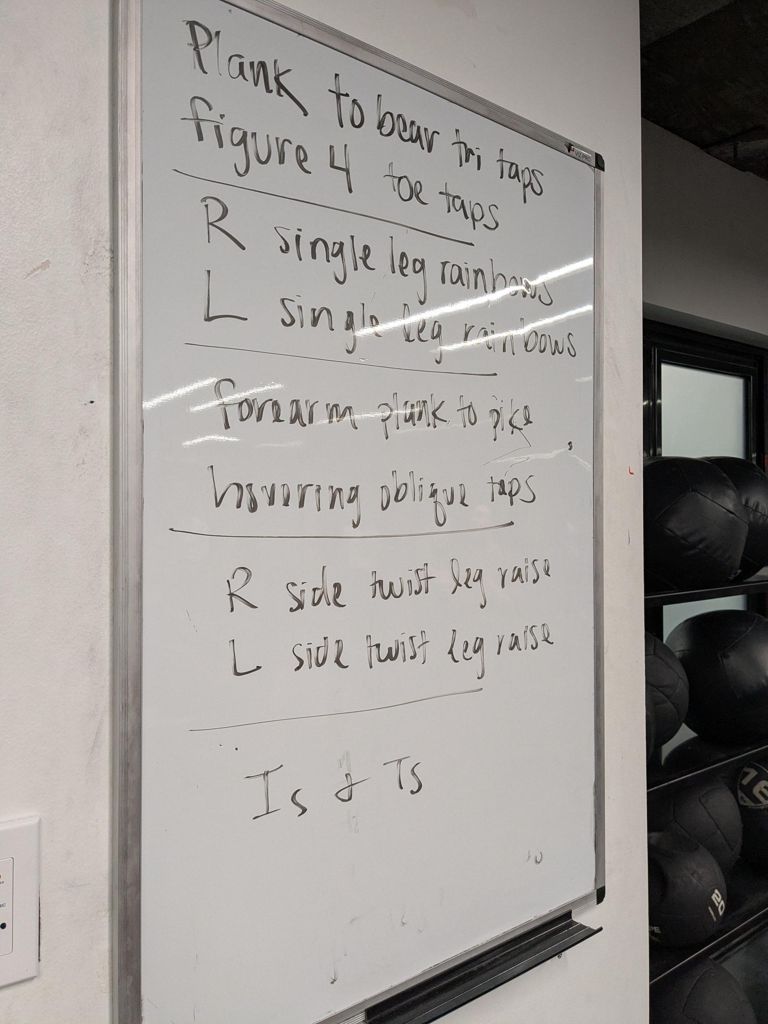 Plank to bear tri taps
figure 4 toe taps
R single leg rainbows
L single leg rainbows
forearm plank to pike
hovering oblique taps
R side twist leg raise
L side twist leg raise
Is & Ts
16
20